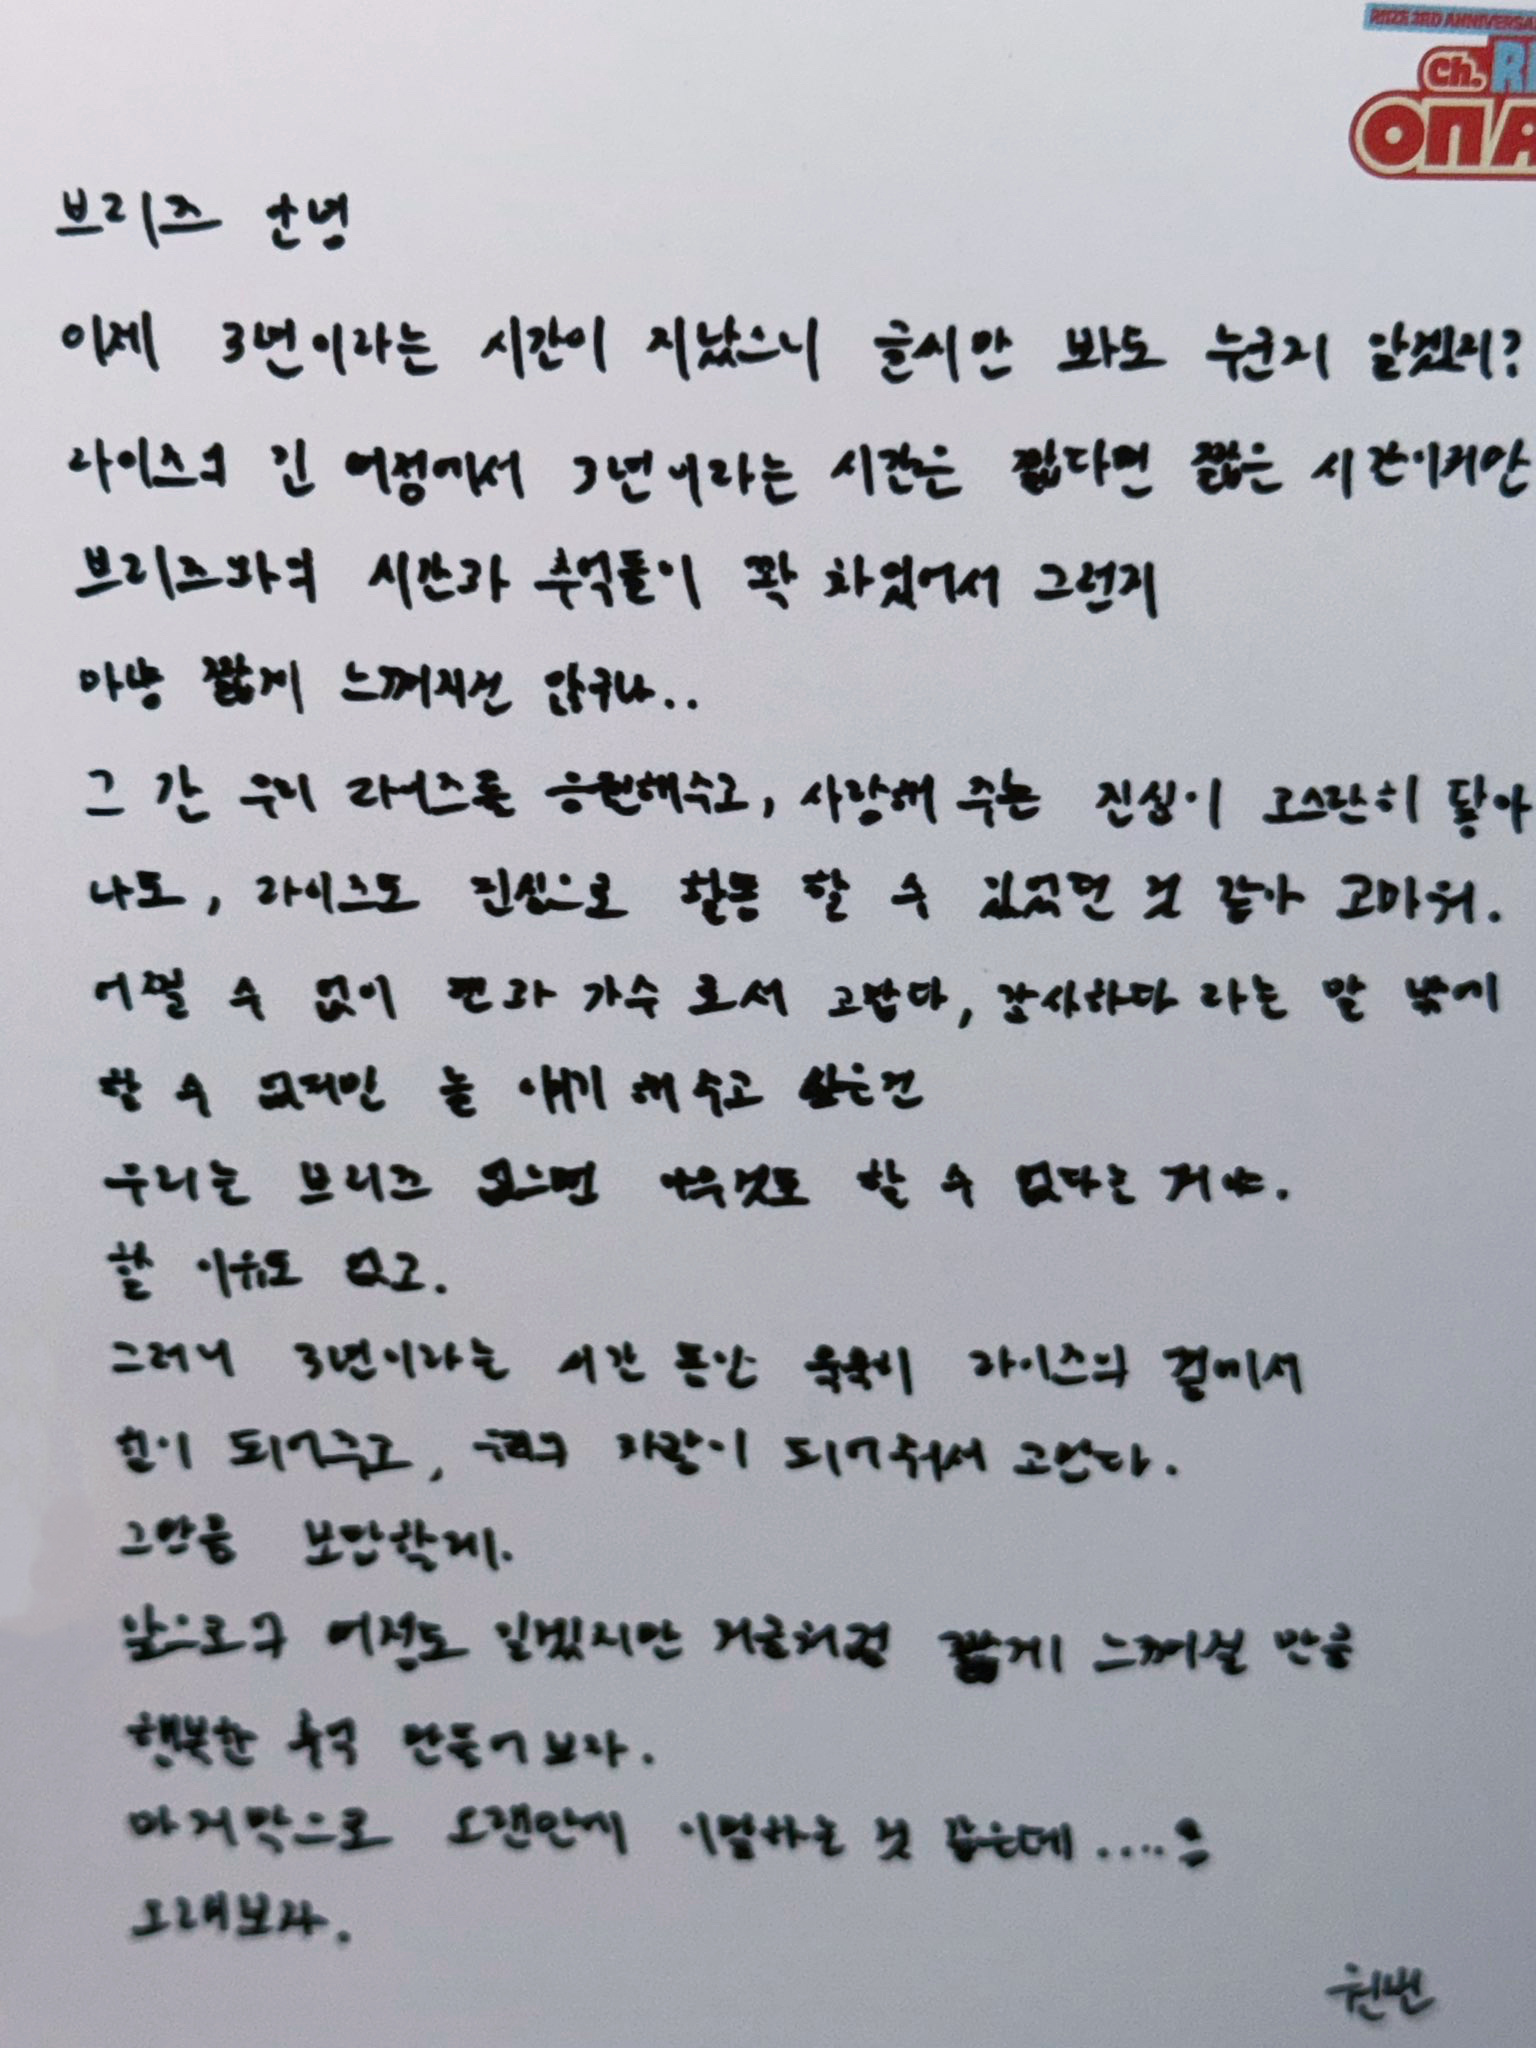 RIIZE 3RD ANNIVERSA
ch. RI
ON A
브리즈 안녕
이제 3년이라는 시간이 지났으니 글씨만 봐도 누군지 알겠지?
라이즈의 긴 여정에서 3년이라는 시간은 짧다면 짧은 시간이지만
브리즈와의 시간과 추억들이 꽉 차있어서 그런지
마냥 짧게 느껴지진 않구나..
그 간 우리 라이즈를 응원해주고, 사랑해 주는 진심이 고스란히 닿아
나도, 라이즈도 진심으로 활동 할 수 있었던 것 같아 고마워.
어쩔 수 없이 팬과 가수로서 고맙다, 감사하다 라는 말 밖에
할 수 없지만 늘 얘기 해주고 싶은건
우리는 브리즈 없으면 아무것도 할 수 없다는 거야.
할 이유도 없고.
그러니 3년이라는 시간 동안 묵묵히 라이즈의 곁에서
힘이 되어주고, 친구 자랑이 되어줘서 고맙다.
그만큼 보답할게.
앞으로구 여정도 길겠지만 지금처럼 짧게 느껴질 만큼
행복한 추억 만들어보자.
마지막으로 오랜만에 이말하는 것 같은데....:
오래보자.
원빈